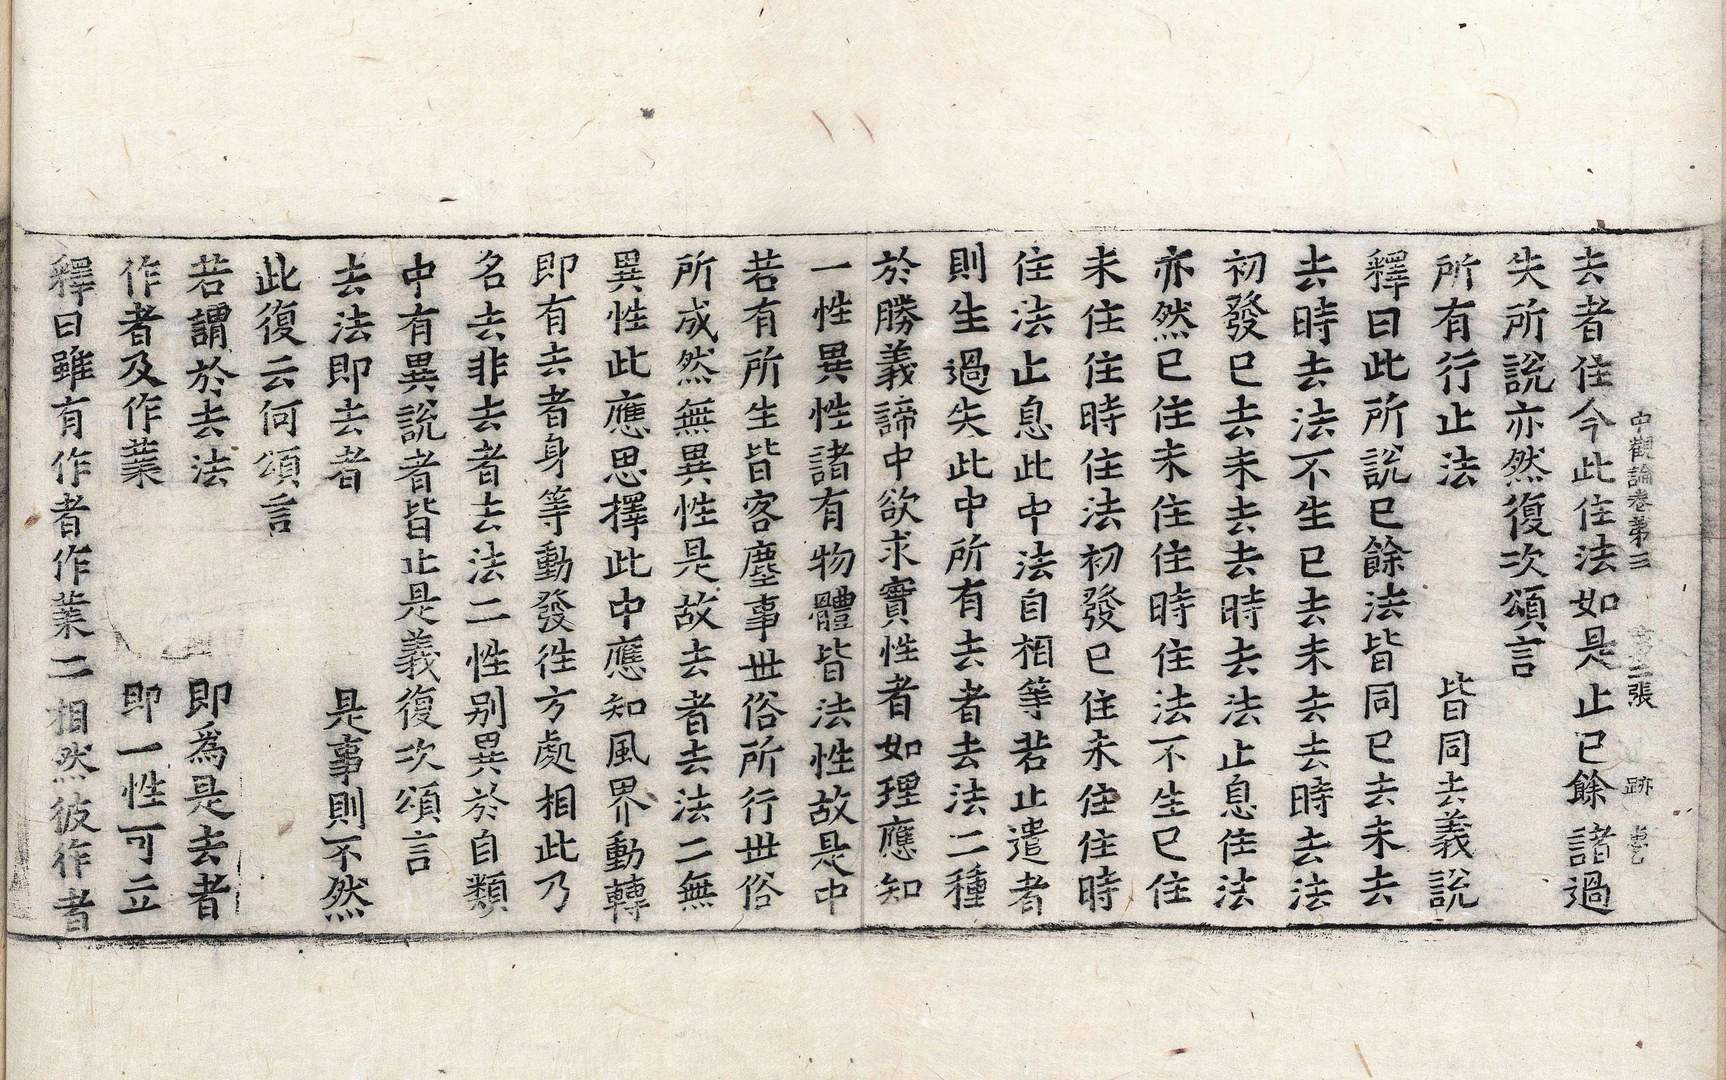 中觀論卷第三 第三張 跡
去者住今此住法如是止已餘諸過
失所說亦然復次頌言
所有行止法 皆同去義說
釋曰此所說已餘法皆同已去未去
去時去法不生已去未去去時去法
初發已去未去去時去法止息住法
亦然已住未住住時住法不生已住
未住住時住法初發已住未住住時
住法止息此中法自相等若止遣者
則生過失此中所有去者去法二種
於勝義諦中欲求實性者如理應知
一性異性諸有物體皆法性故是中
若有所生皆客塵事世俗所行世俗
所成然無異性是故去者去法二無
異性此應思擇此中應知風界動轉
即有去者身等動發往方處相此乃
名去非去者去法二性别異於自類
中有異說者皆止是義復次頌言
去法即去者 是事則不然
此復云何頌言
若謂於去法 即為是去者
作者及作業 即一性可立
釋曰雖有作者作業二相然彼作者